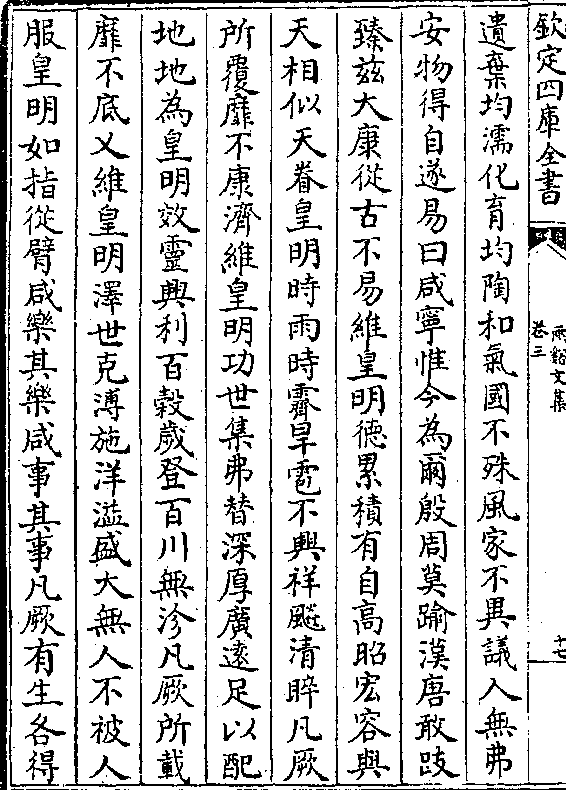 欽定四庫全書
兩谿文集
卷三
十七
遺棄均濡化育均陶和氣國不殊風家不異議人無弗
安物得自遂易曰咸寧惟今為爾殷周莫踰漢唐敢跂
臻茲大康從古不易維皇明德累積有自高昭宏容與
天相似天眷皇明時雨時霽旱雹不興祥飈清睟凡厥
所覆靡不康濟維皇明功世集弗替深厚廣遠足以配
地地為皇明效靈興利百穀嵗登百川無沴凡厥所載
靡不底乂維皇明澤世克溥施洋溢盛大無人不被人
服皇明如指從臂咸樂其樂咸事其事凡厥有生各得